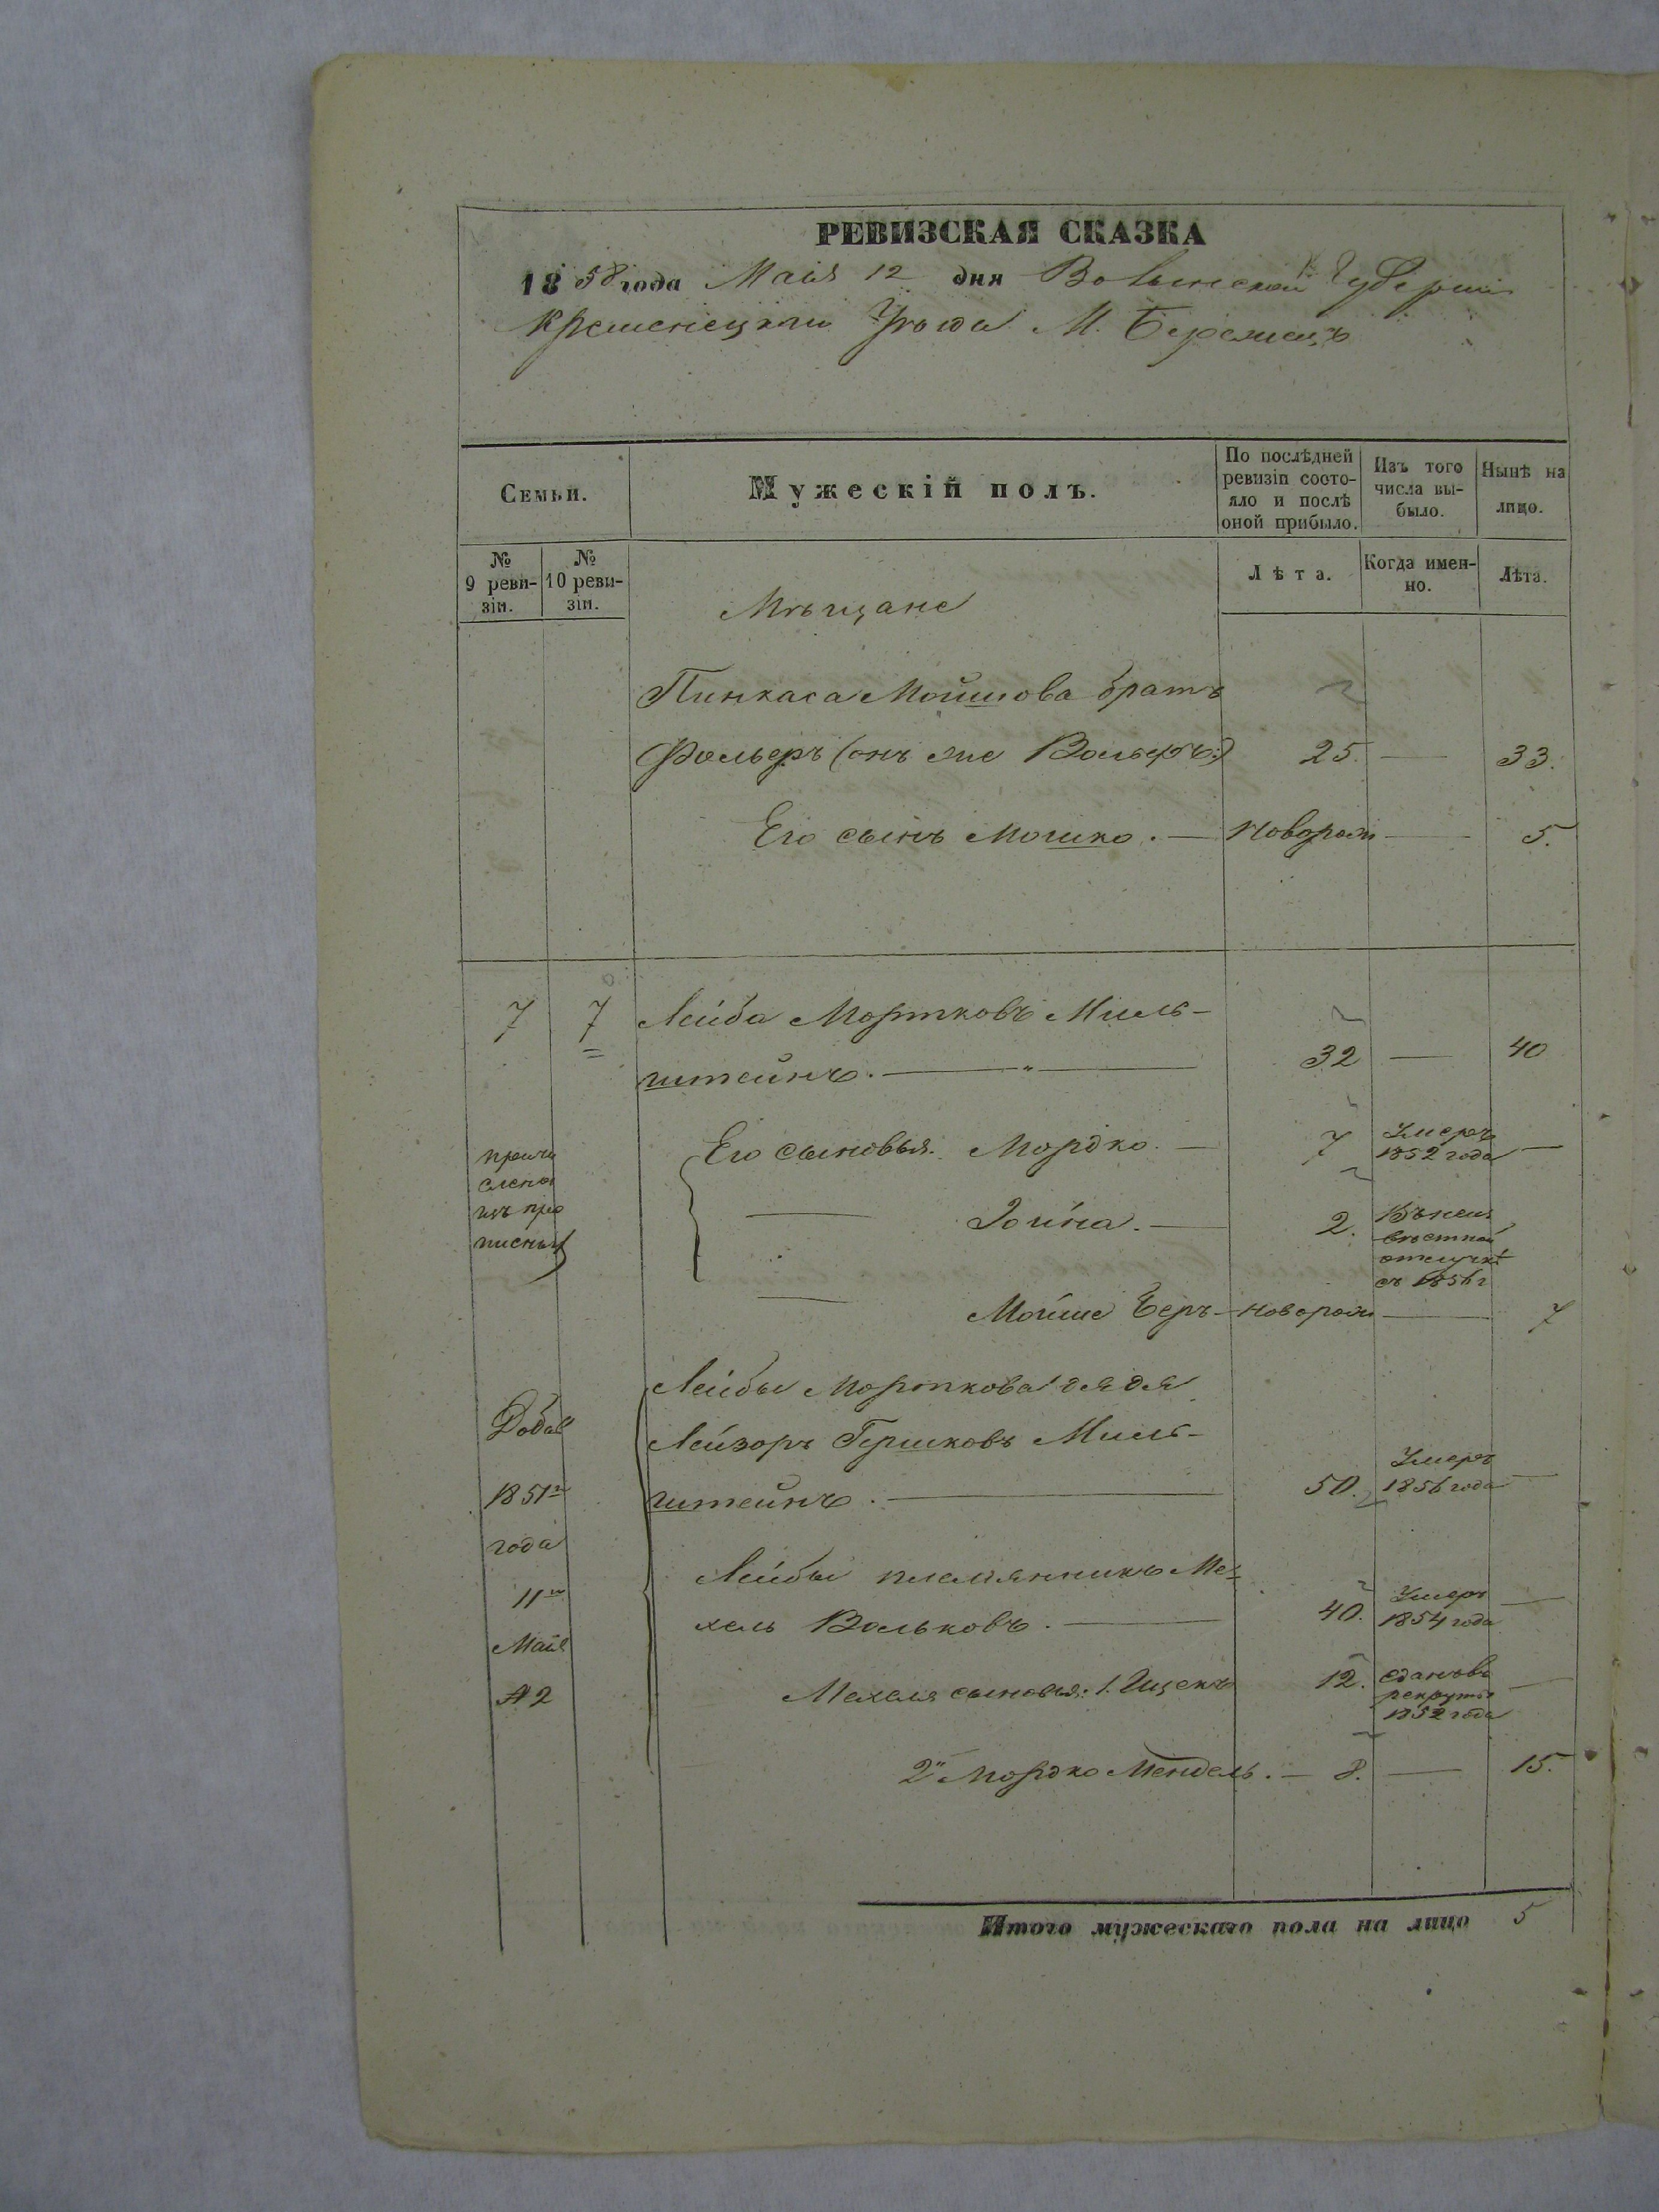 РЕВИЗСКАЯ СКАЗКА
1858 года Маія 12 дня Волынской Губерніи
Кременецкаго Уѣзда М. Бережецъ
Семьи.
Мужескій полъ.
По послѣдней ревизіи состояло и послѣ оной прибыло.
Изъ того числа выбыло.
Нынѣ на лицо.
№ 9 ревизіи.
№ 10 ревизіи.
Лѣта.
Когда именно.
Лѣта.
Мѣщане
Пинкаса Мошкова братъ
Фольеръ (онъ же Вольфъ) 25. — 33.
Его сынъ Мошко. — новорож — 5.
7 7 Лейба Мортковъ Миль-
штейнъ. — 32 — 40
причи
слены
изъ про
писных
Его сыновья. Мордко. — 7 Умеръ 1852 года —
— Іойна. — 2. Въ неиз
вѣстной
отлучкѣ
съ 1856 г
— Мойше Беръ — новорож — 7
Лейбы Морткова дядя
Добав
Лейзоръ Гершковъ Миль-
1851го штейнъ. — 50. Умеръ 1856 года —
года
Лейбы племянникъ Ме-
11го
хель Вольковъ. — 40. Умеръ 1854 года —
Маія
№ 2 Мехеля сыновья: 1. Ицекъ 12. сданъ въ
рекруты
1852 года —
2й Мордко Мендель. — 8. — 15.
Итого мужескаго пола на лицо 5